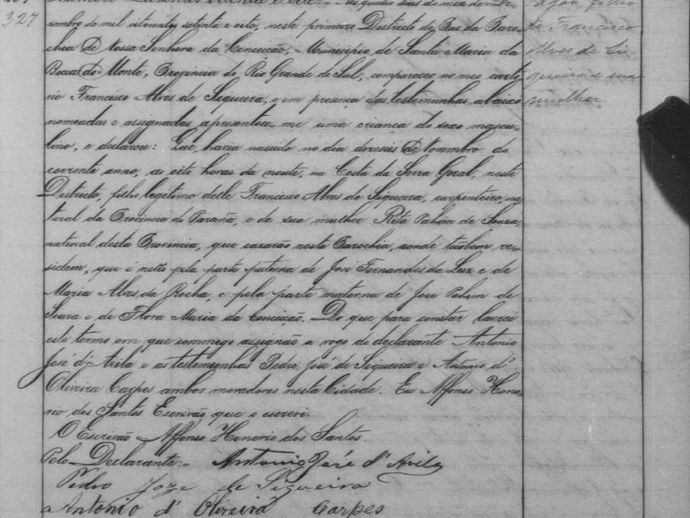 327
zembro de mil oitocentos setenta e oito, neste primeiro Districto de Paz da Paro-
chia de Nossa Senhora da Conceição, Municipio de Santa Maria da
Bocca do Monte, Provincia do Rio Grande do Sul, compareceo no meu carto-
rio Francisco Alves de Siqueira, e em presença das testemunhas abaixo
nomeadas e assignadas apresentou-me uma criança do sexo mascu-
lino, e declarou: Que, havia nascido no dia dezeseis de Novembro do
corrente anno, as oito horas da noute, na Costa da Serra Geral, neste
Districto, filho legitimo delle Francisco Alves de Siqueira, carpenteiro, na-
tural da Provincia do Paraná, e de sua mulher Rita Pahim de Souza
natural desta Provincia, que casarão nesta Parochia, aonde tambem re-
sidem, que é netto pela parte paterna de José Fernandes da Luz e de
Maria Alves da Rocha, e pela parte materna de José Pahim de
Souza e de Flora Maria da Conceição. Do que para constar lavrei
este termo em que commigo assignão a rogo do declarante Antonio
José d'Avila e as testemunhas Pedro José de Siqueira e Antonio d'
Oliveira Carpes ambos moradores nesta Cidade. Eu Affonso Hono-
rio dos Santos Escrivão que o escrevi.
O Escrivão Affonso Honorio dos Santos.
Pelo Declarante. Antonio José d'Avila
Pedro Joze de Siqueira
Antonio d' Oliveira Carpes
filho
de Francisco
Alves de Si-
queira e sua
mulher.